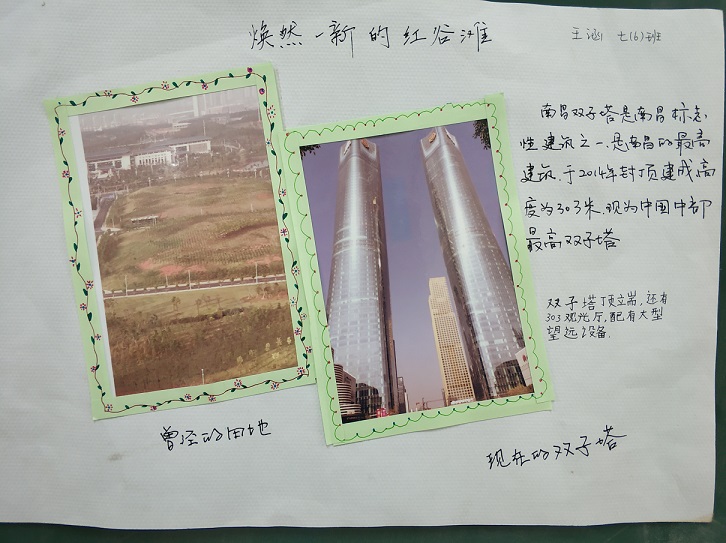 焕然一新的红谷滩
王涵 七(6)班
南昌双子塔是南昌标志
性建筑之一.是南昌的最高
建筑.于2014年封顶建成,高
度为303米,现为中国中部
最高双子塔
双子塔顶立端,还有
303观光厅,配有大型
望远设备.
曾经的田地
现在的双子塔